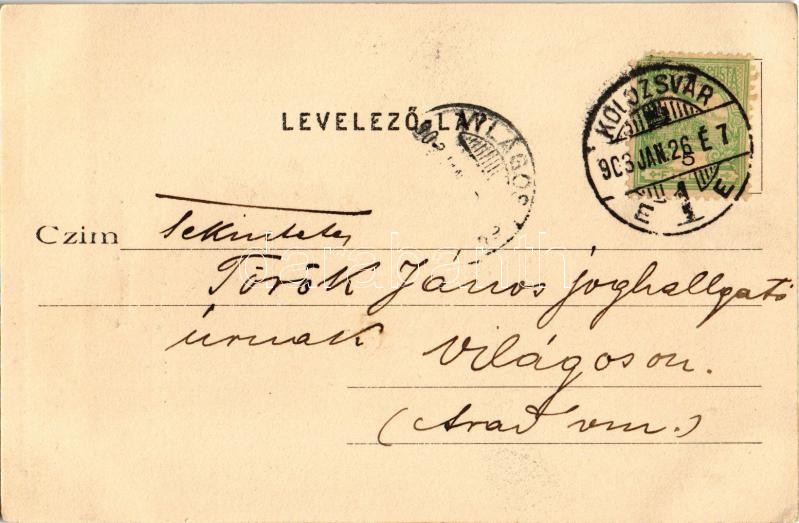 LEVELEZŐ-LAP
VILÁGOS
KOLOZSVÁR
903 JAN. 26 É 7
1
Czim Tekintetes
Török János joghallgató
úrnak Világoson.
(Arad vm.)
darabanth